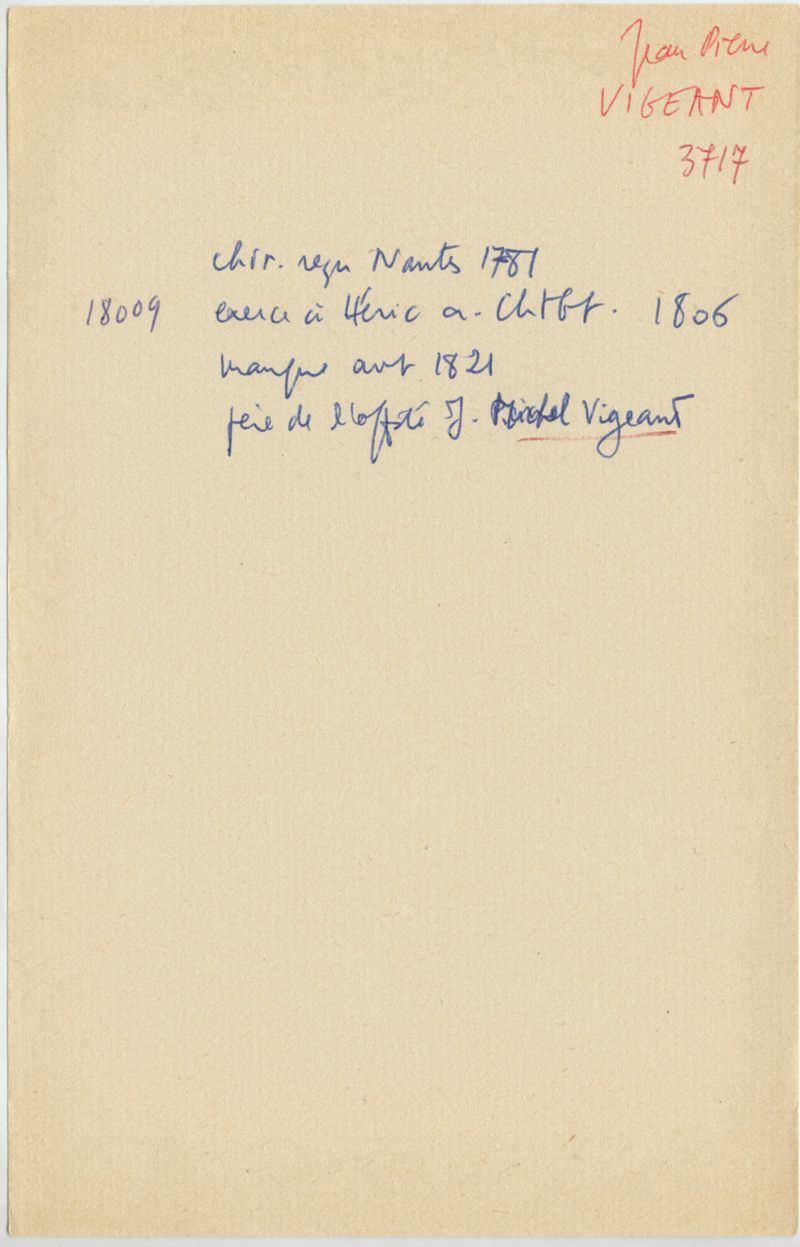 Jean Pierre
VIGEANT
3717
chir. reçu Nantes 1781
18009 exerce à Héric a. Chtbt. 1806
manque avt 1821
père de l'offté J. Michel Vigeant